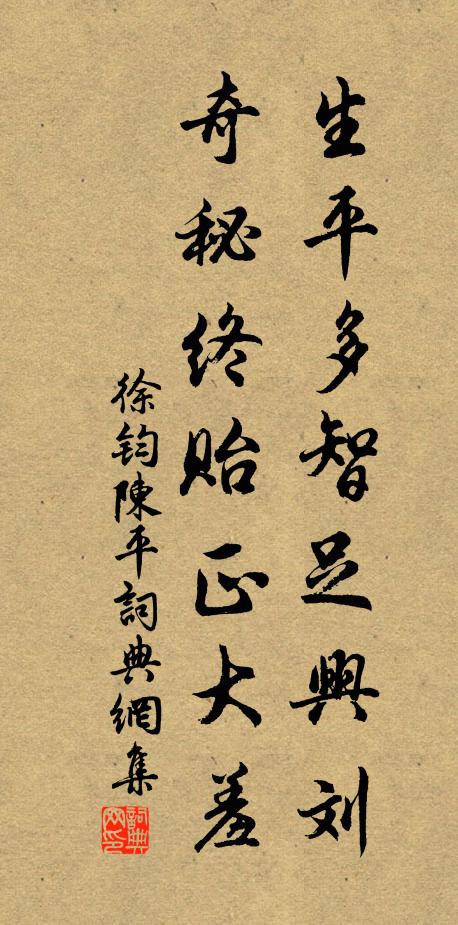 生平多智足興刘
奇秘终贻正大羞
徐鈞陳平詞典網集
詞典网印